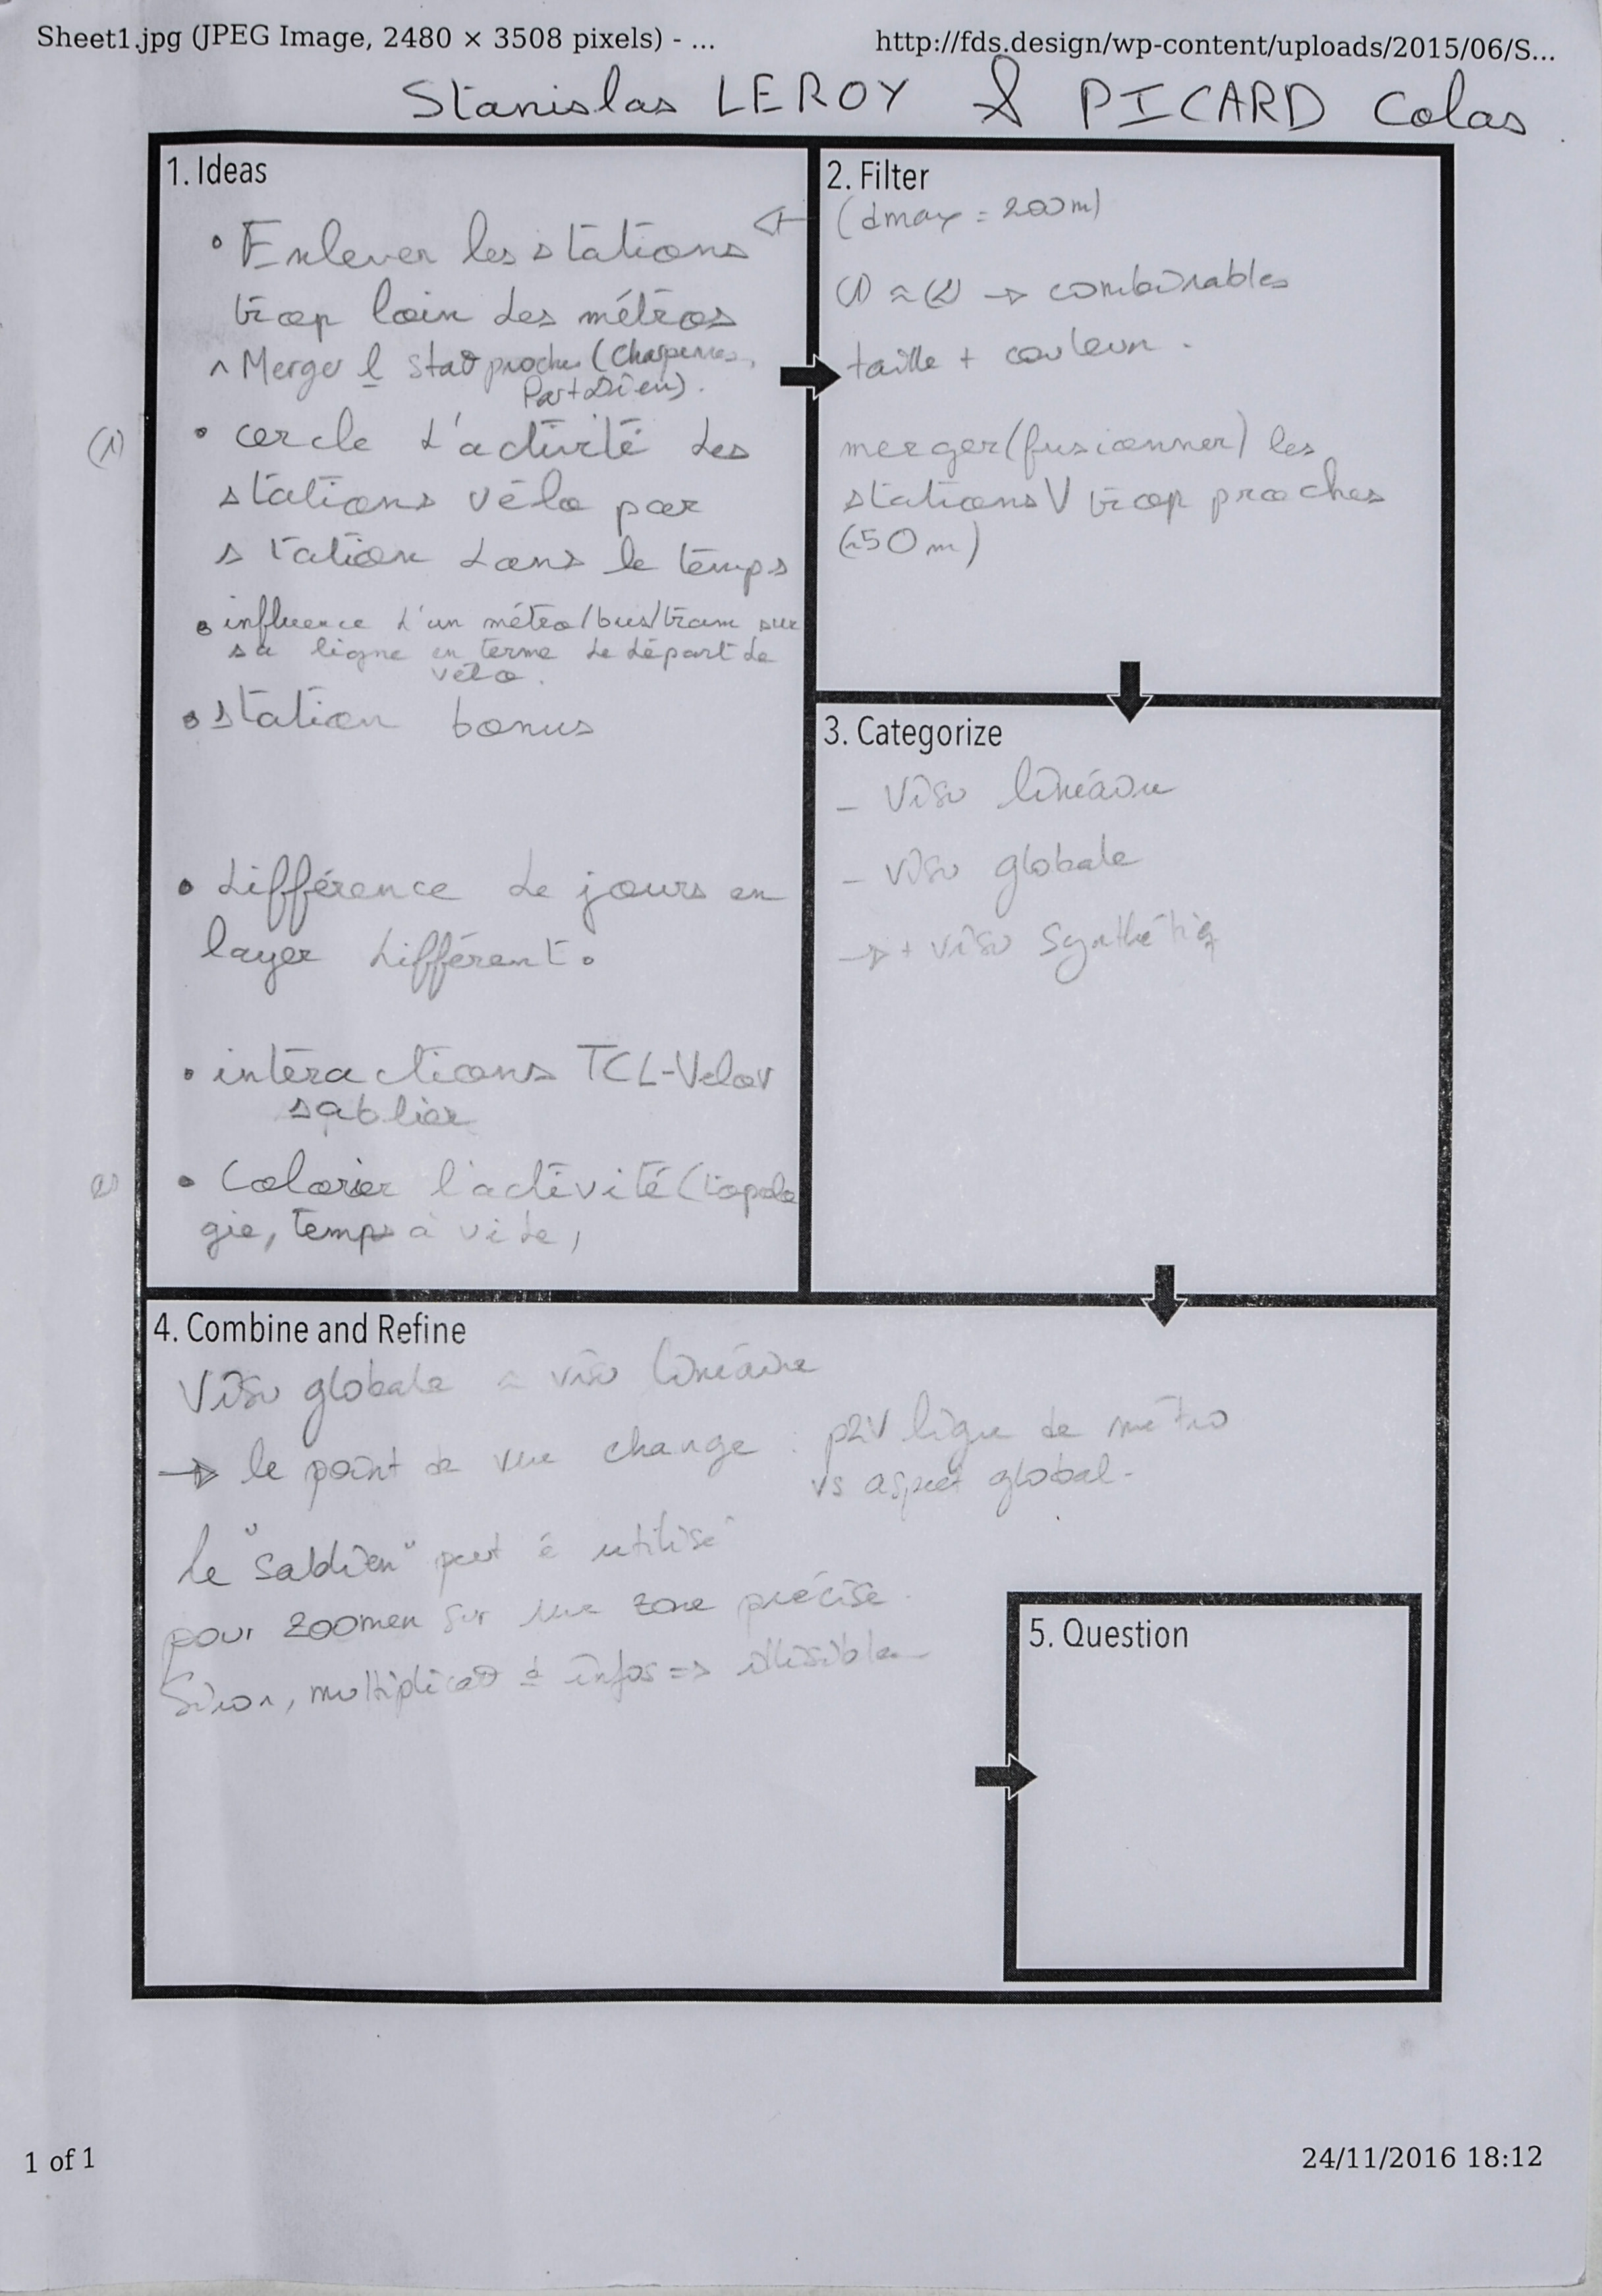 Sheet1.jpg (JPEG Image, 2480 × 3508 pixels) - ...
http://fds.design/wp-content/uploads/2015/06/S...
Stanislas LEROY & PICARD Colas
1. Ideas
• Enlever les stations
trop loin des métros
Merger stat proches (Charpennes,
Part Dieu).
(1) • cercle d'activité des
stations vélo par
station dans le temps
• influence d'un métro/bus/tram sur
sa ligne en terme de départ de
vélo.
• station bonus
• différence de jours en
layer différent.
• intéractions TCL-Velov
sablier
• Colorier l'activité (topolo
gie, temps à vide,
2. Filter
(dmax = 200m)
(1) ≈ (2) → combinables
taille + couleur.
merger (fusionner) les
stations V trop proches
(~50m)
3. Categorize
- Visu linéaire
- visu globale
→ + visu synthétiq
4. Combine and Refine
Visu globale ≈ visu linéaire
→ le point de vue change : ligne de métro
vs aspect global.
le "sablier" peut ê utilisé
pour zoomer sur une zone précise.
Sinon, infos => illisible
5. Question
1 of 1
24/11/2016 18:12